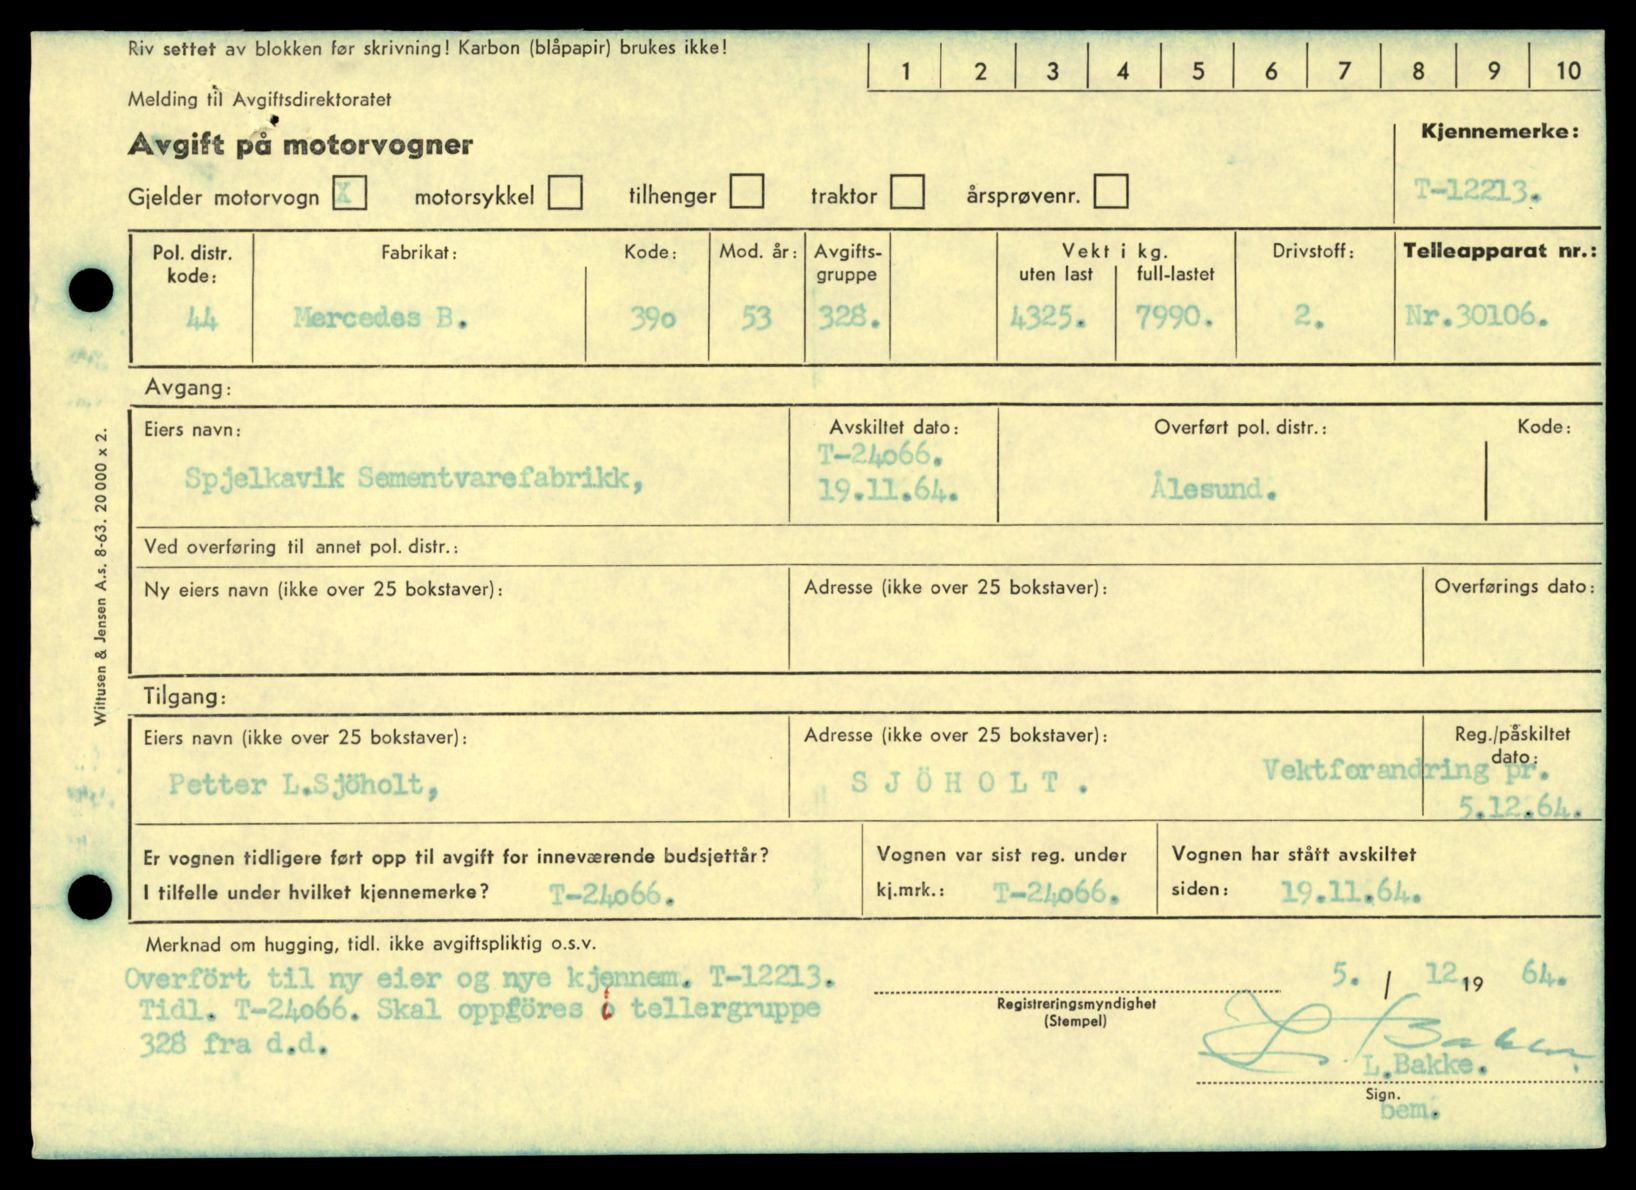 Riv settet av blokken før skrivning! Karbon (blåpapir) brukes ikke!
1 2 3 4 5 6 7 8 9 10
Melding til Avgiftsdirektoratet
Avgift på motorvogner
Kjennemerke:
Gjelder motorvogn X motorsykkel tilhenger traktor årsprøvenr.
T-12213.
Pol. distr. kode: Fabrikat: Kode: Mod. år: Avgifts-gruppe Vekt i kg. uten last full-lastet Drivstoff: Telleapparat nr.:
44 Mercedes B. 390 53 328. 4325. 7990. 2. Nr.30106.
Avgang:
Eiers navn: Avskiltet dato: Overført pol. distr.: Kode:
T-24066.
Spjelkavik Sementvarefabrikk, 19.11.64. Ålesund.
Ved overføring til annet pol. distr.:
Ny eiers navn (ikke over 25 bokstaver): Adresse (ikke over 25 bokstaver): Overførings dato:
Tilgang:
Eiers navn (ikke over 25 bokstaver): Adresse (ikke over 25 bokstaver): Reg./påskiltet dato:
Petter L.Sjöholt, SJÖHOLT. Vektforandring pr.
5.12.64.
Er vognen tidligere ført opp til avgift for inneværende budsjettår? Vognen var sist reg. under Vognen har stått avskiltet
I tilfelle under hvilket kjennemerke? T-24066. kj.mrk.: T-24066. siden: 19.11.64.
Merknad om hugging, tidl. ikke avgiftspliktig o.s.v.
Overfört til ny eier og nye kjennem. T-12213.
Tidl. T-24066. Skal oppföres i tellergruppe
328 fra d.d.
5. / 12 19 64.
Registreringsmyndighet
(Stempel)
L. Bakke
L.Bakke.
Sign.
bem.
Wittusen & Jensen A.s. 8-63. 20 000 x 2.